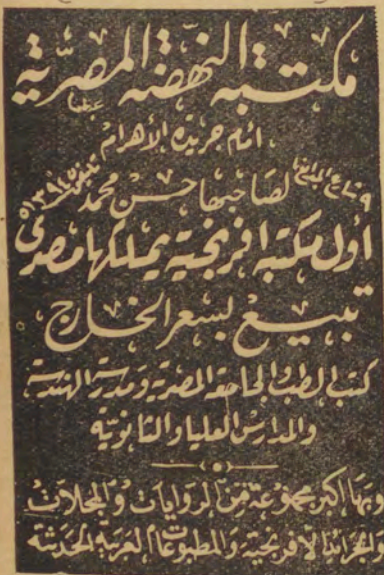 مكتبة النهضة المصرية
امام جريدة الأهرام
لصاحبها حسن محمد
أول مكتبة افرنجية يملكها مصري
تبيع بسعر الخارج
كتب الطب والجامعة المصرية ومدرسة الهندسة
والمدارس العليا والثانوية
وبها اكبر مجموعة من الروايات والمجلات
والجرائد الافرنجية والمطبوعات العربية الحديثة